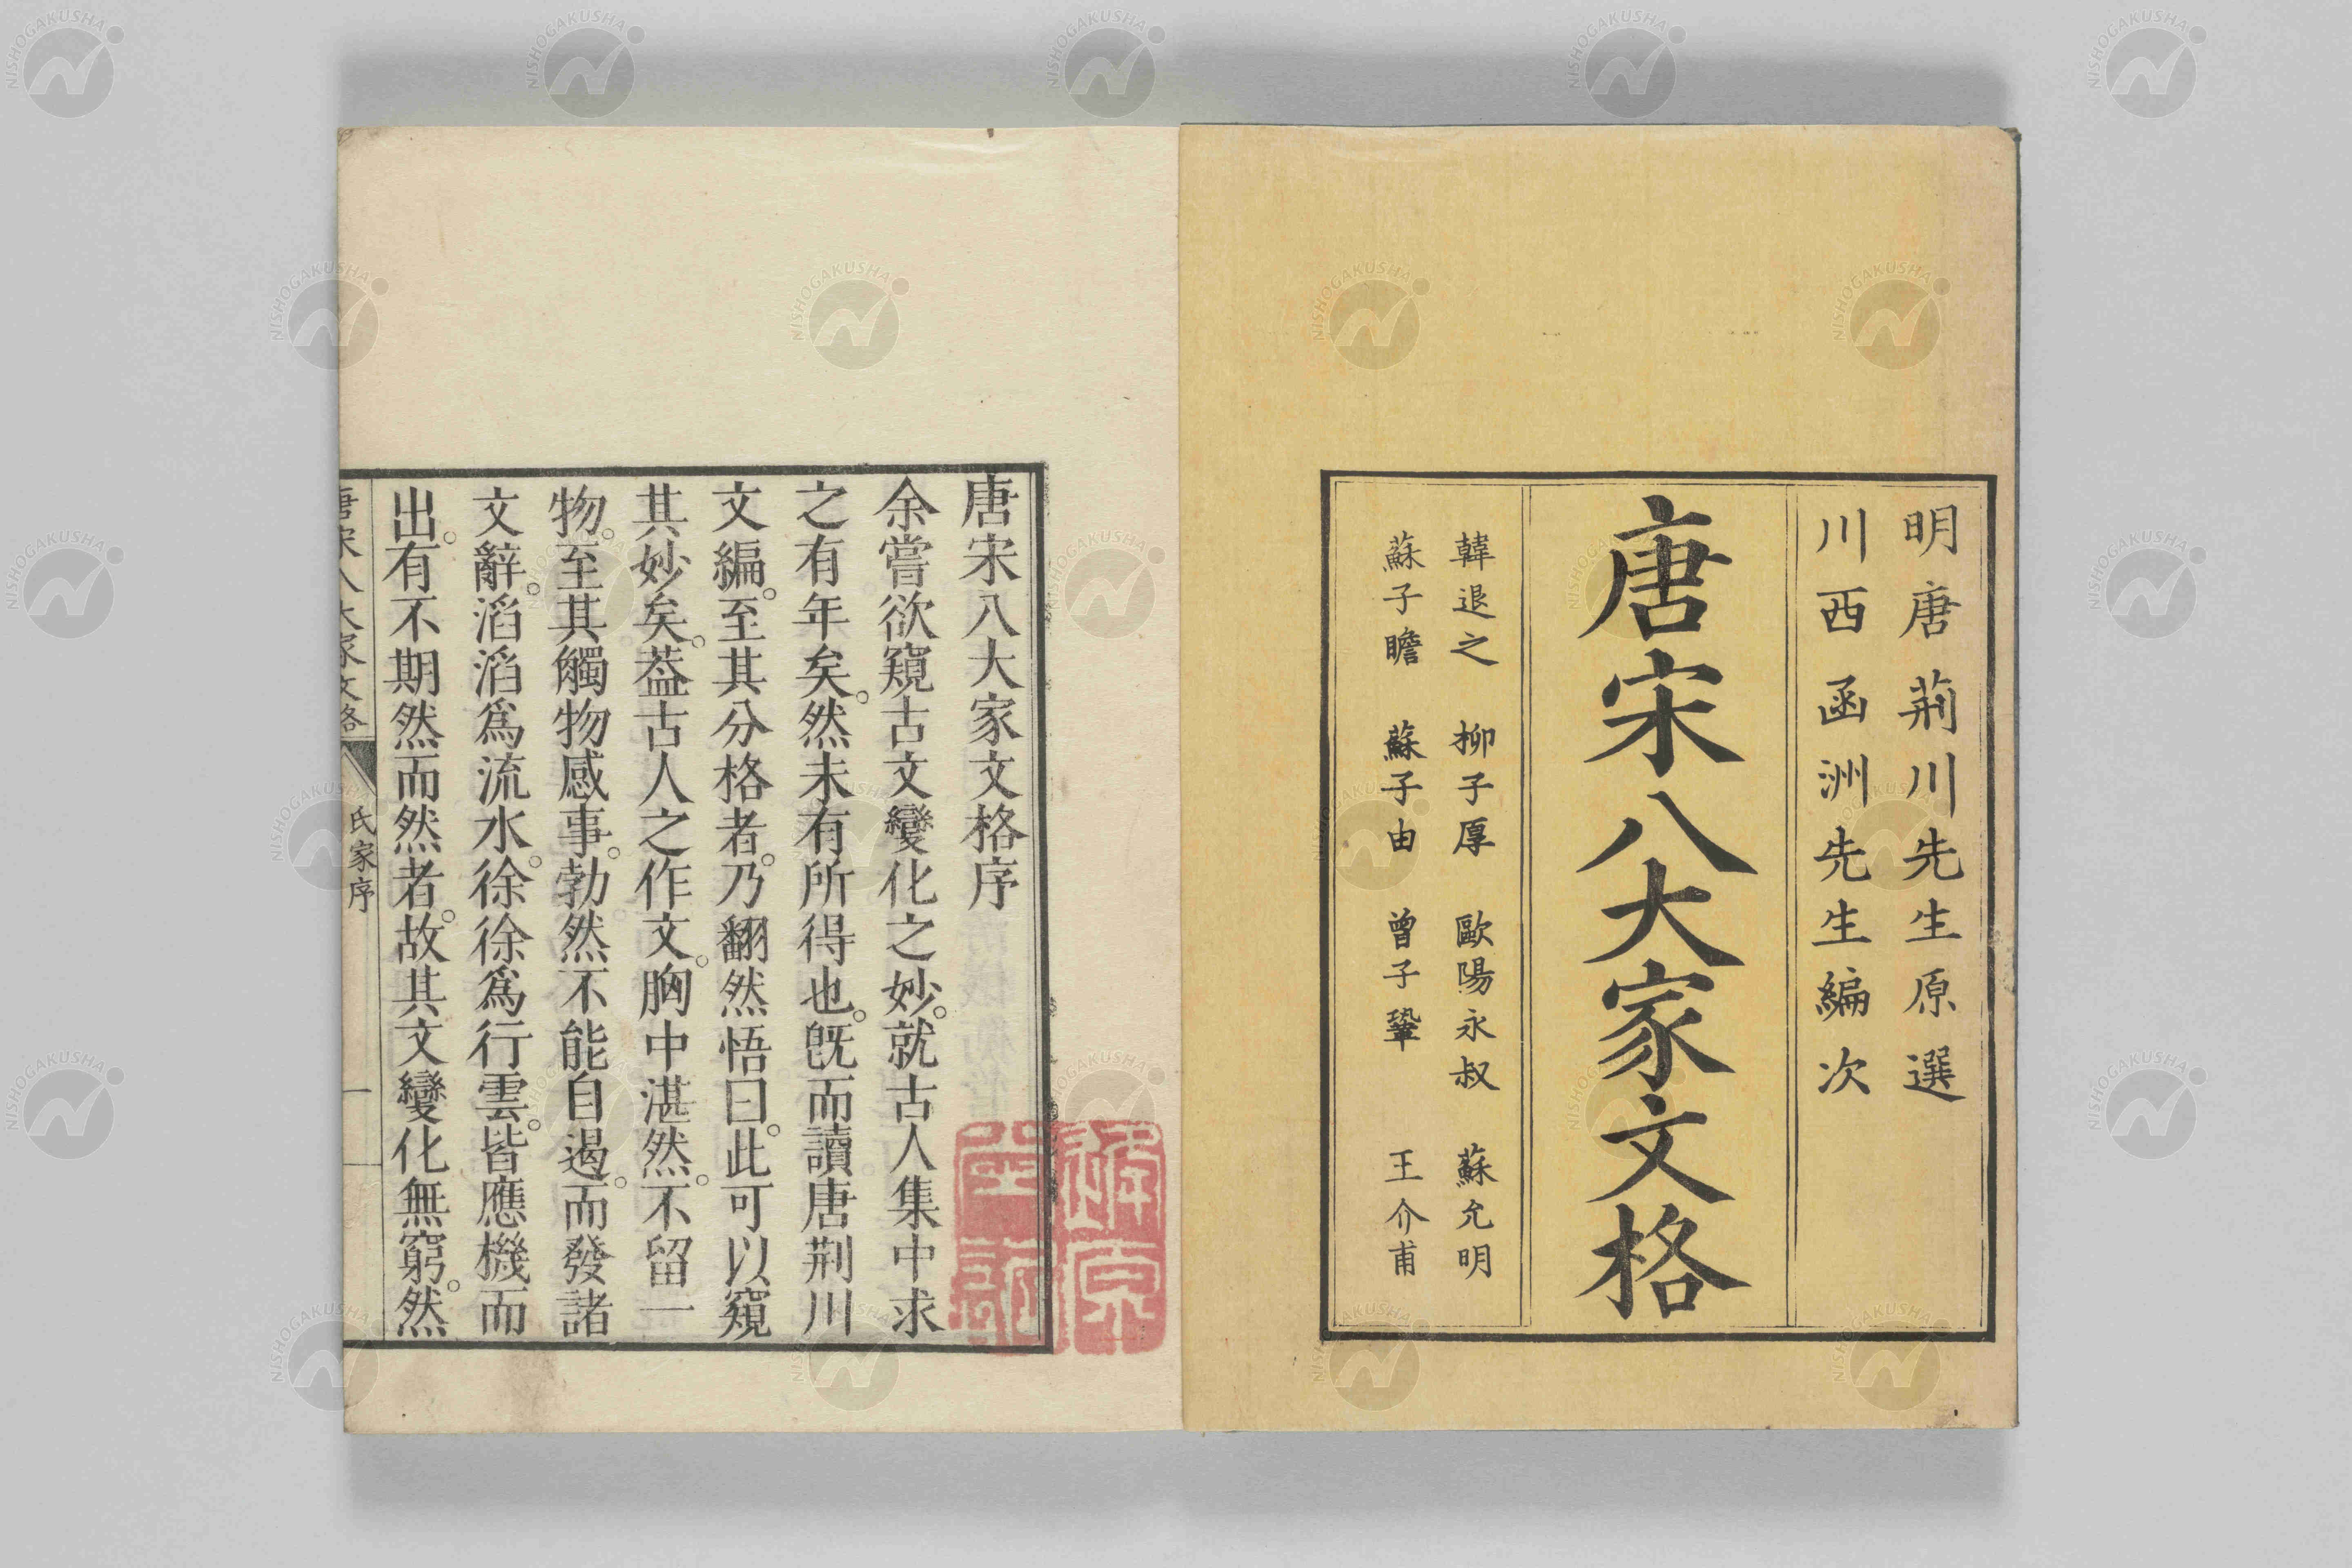 明唐荊川先生原選
川西函洲先生編次
唐宋八大家文格
韓退之 柳子厚 歐陽永叔 蘇允明
蘇子瞻 蘇子由 曾子鞏 王介甫
唐宋八大家文格序
余嘗欲窺古文變化之妙。就古人集中求
之有年矣。然未有所得也。旣而讀唐荆川
文編。至其分格者。乃翻然悟曰。此可以窺
其妙矣。葢古人之作文。胸中湛然。不留一
物。至其觸物感事。勃然不能自遏。而發諸
文辭。滔滔爲流水。徐徐爲行雲。皆應機而
出。有不期然而然者。故其文變化無窮。然
唐宋八大家文格 氏家序 一
NISHOGAKUSHA